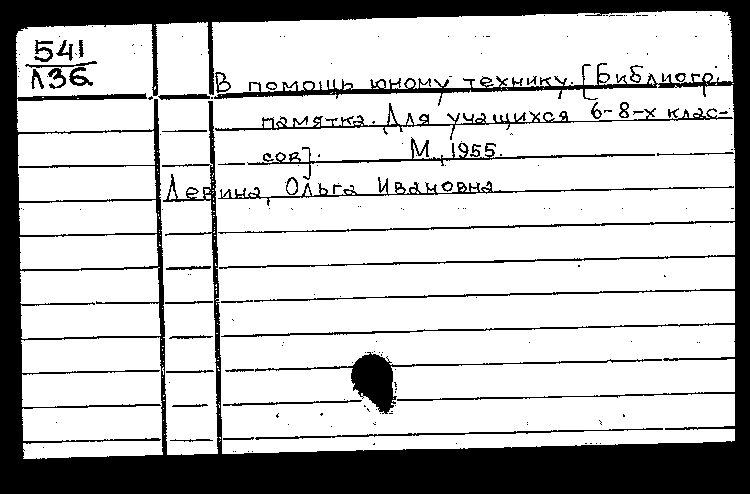 541
Л36
В помощь юному технику. [Библиогр.
памятка. Для учащихся 6-8-х клас-
сов].          М., 1955.
Левина, Ольга Ивановна